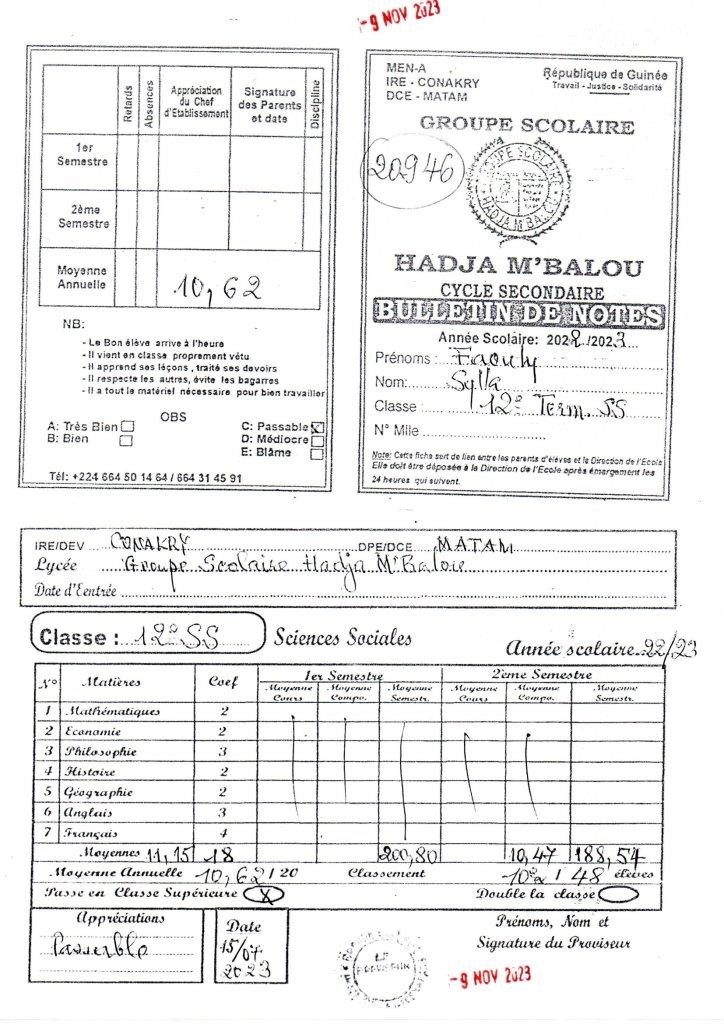 -9 NOV 2023
Retards
Absences
Appréciation du Chef d'Etablissement
Signature des Parents et date
Discipline
1er Semestre
2ème Semestre
Moyenne Annuelle
10,62
NB:
- Le Bon élève arrive à l'heure
- Il vient en classe proprement vêtu
- Il apprend ses leçons, traité ses devoirs
- Il respecte les autres, évite les bagarres
- Il a tout le matériel nécessaire pour bien travailler
OBS
A: Très Bien
B: Bien
C: Passable X
D: Médiocre
E: Blâme
Tél: +224 664 50 14 64 / 664 31 45 91
MEN-A
IRE - CONAKRY
DCE - MATAM
République de Guinée
Travail - Justice - Solidarité
GROUPE SCOLAIRE
20946
GROUPE SCOLAIRE
HADJA M'BALOU
HADJA M'BALOU
CYCLE SECONDAIRE
BULLETIN DE NOTES
Année Scolaire: 2022/2023
Prénoms :
Nom: Sylla
Classe : 12e Term.SS
N° Mle
Note: Cette fiche sert de lien entre les parents d'élèves et la Direction de l'Ecole
Elle doit être déposée à la Direction de l'Ecole après émargement les
24 heures qui suivent.
IRE/DEV CONAKRY DPE/DCE MATAM
Lycée Groupe Scolaire Hadja M'Balou
Date d'Eentrée
Classe : 12e SS Sciences Sociales Année scolaire 22/23
N° Matières Coef 1er Semestre 2ème Semestre
Moyenne Cours Moyenne Compo. Moyenne Semestr. Moyenne Cours Moyenne Compo. Moyenne Semestr.
1 Mathématiques 2
2 Economie 2
3 Philosophie 3
4 Histoire 2
5 Géographie 2
6 Anglais 3
7 Français 4
Moyennes 11,15 18 200,80 10,47 188,54
Moyenne Annuelle 10,62 / 20 Classement 10e / 48 éleves
Passe en Classe Supérieure X Double la classe
Appréciations
Passerble
Date
15/07
2023
Prénoms, Nom et
Signature du Proviseur
LE PROVISEUR
-9 NOV 2023